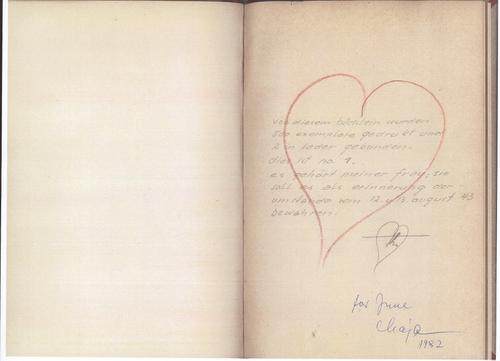 von diesem büchlein wurden
500 exemplare gedruckt und
2 in leder gebunden.
dies ist no. 1.
es gehört meiner frau; sie
soll es als erinnerung der
umstände vom 12. u. 13. august 43
bewahren.
for June
1982